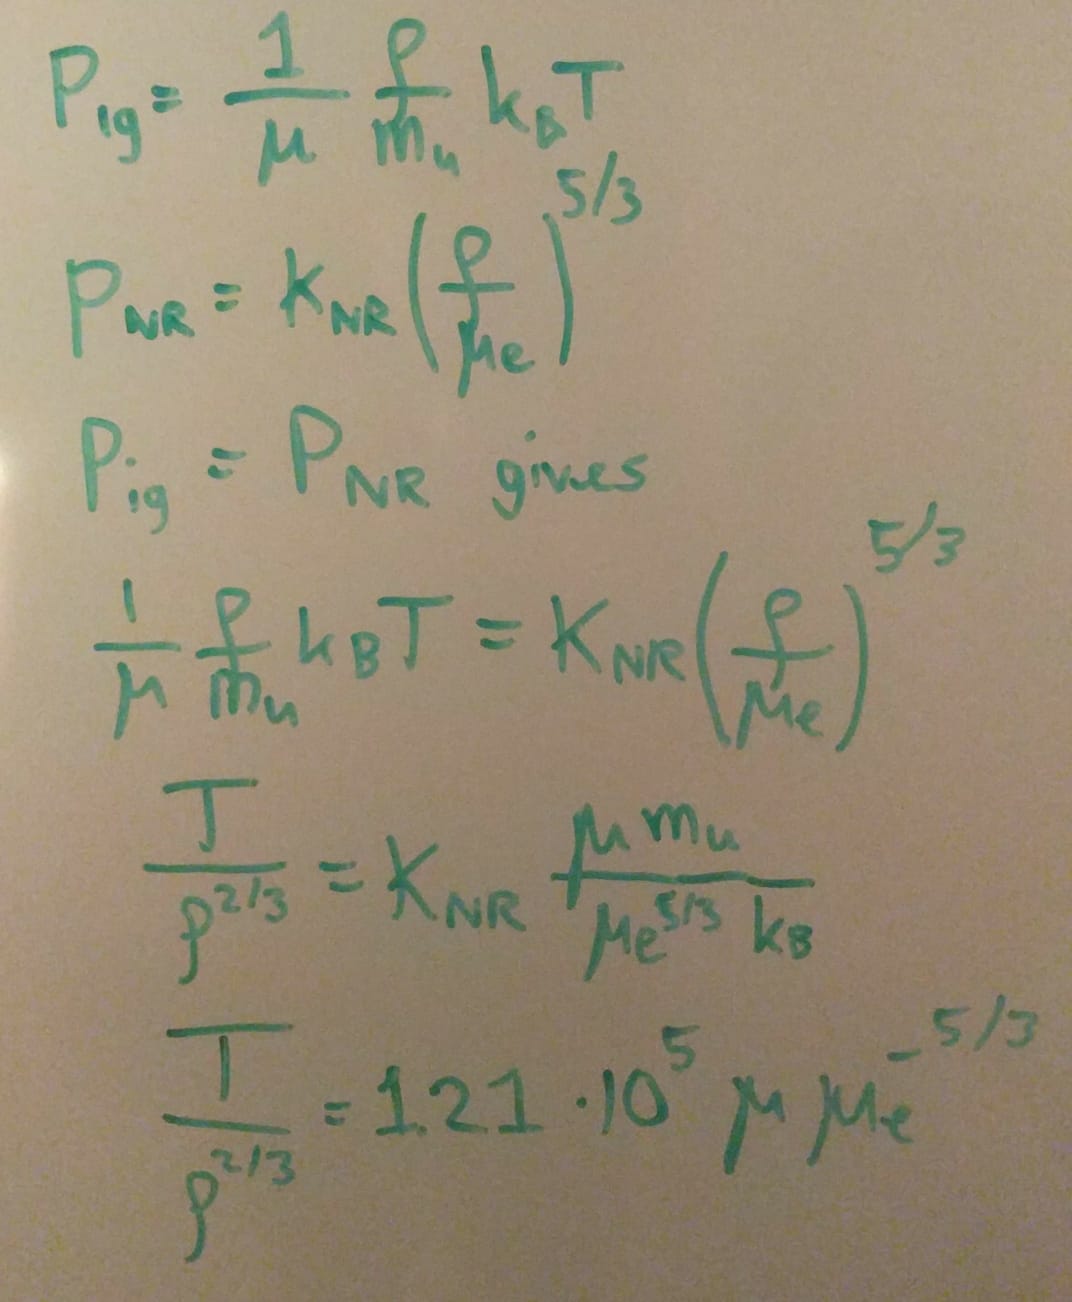 P_ig = 1/μ ρ/m_u k_B T
P_NR = K_NR (ρ/μ_e)^5/3
P_ig = P_NR gives
1/μ ρ/m_u k_B T = K_NR (ρ/μ_e)^5/3
T/ρ^2/3 = K_NR μ m_u / μ_e^5/3 k_B
T/ρ^2/3 = 1.21 · 10^5 μ μ_e^-5/3